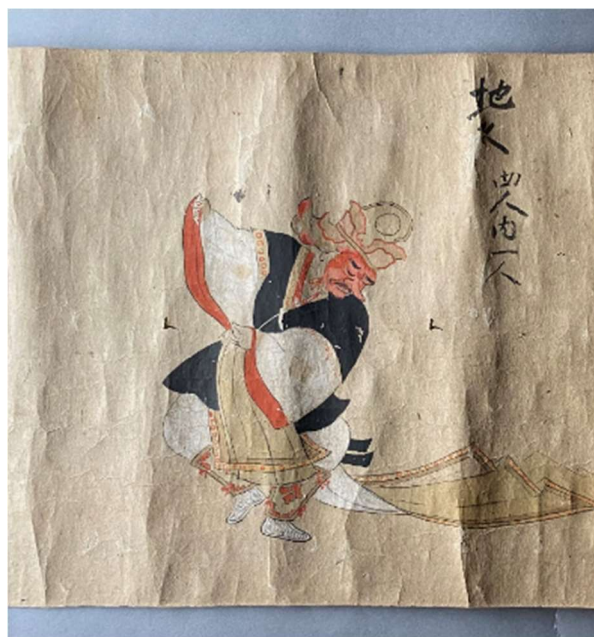 地久 四人内一人